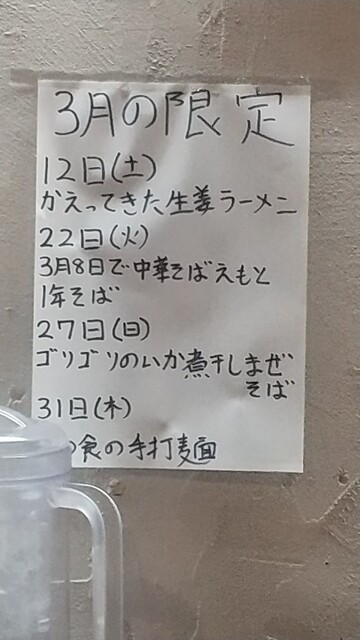 3月の限定
12日(土)
かえってきた生姜ラーメン
22日(火)
3月8日で中華そばえもと
1年そば
27日(日)
ゴリゴリのいか煮干しまぜ
そば
31日(木)
食の手打麺